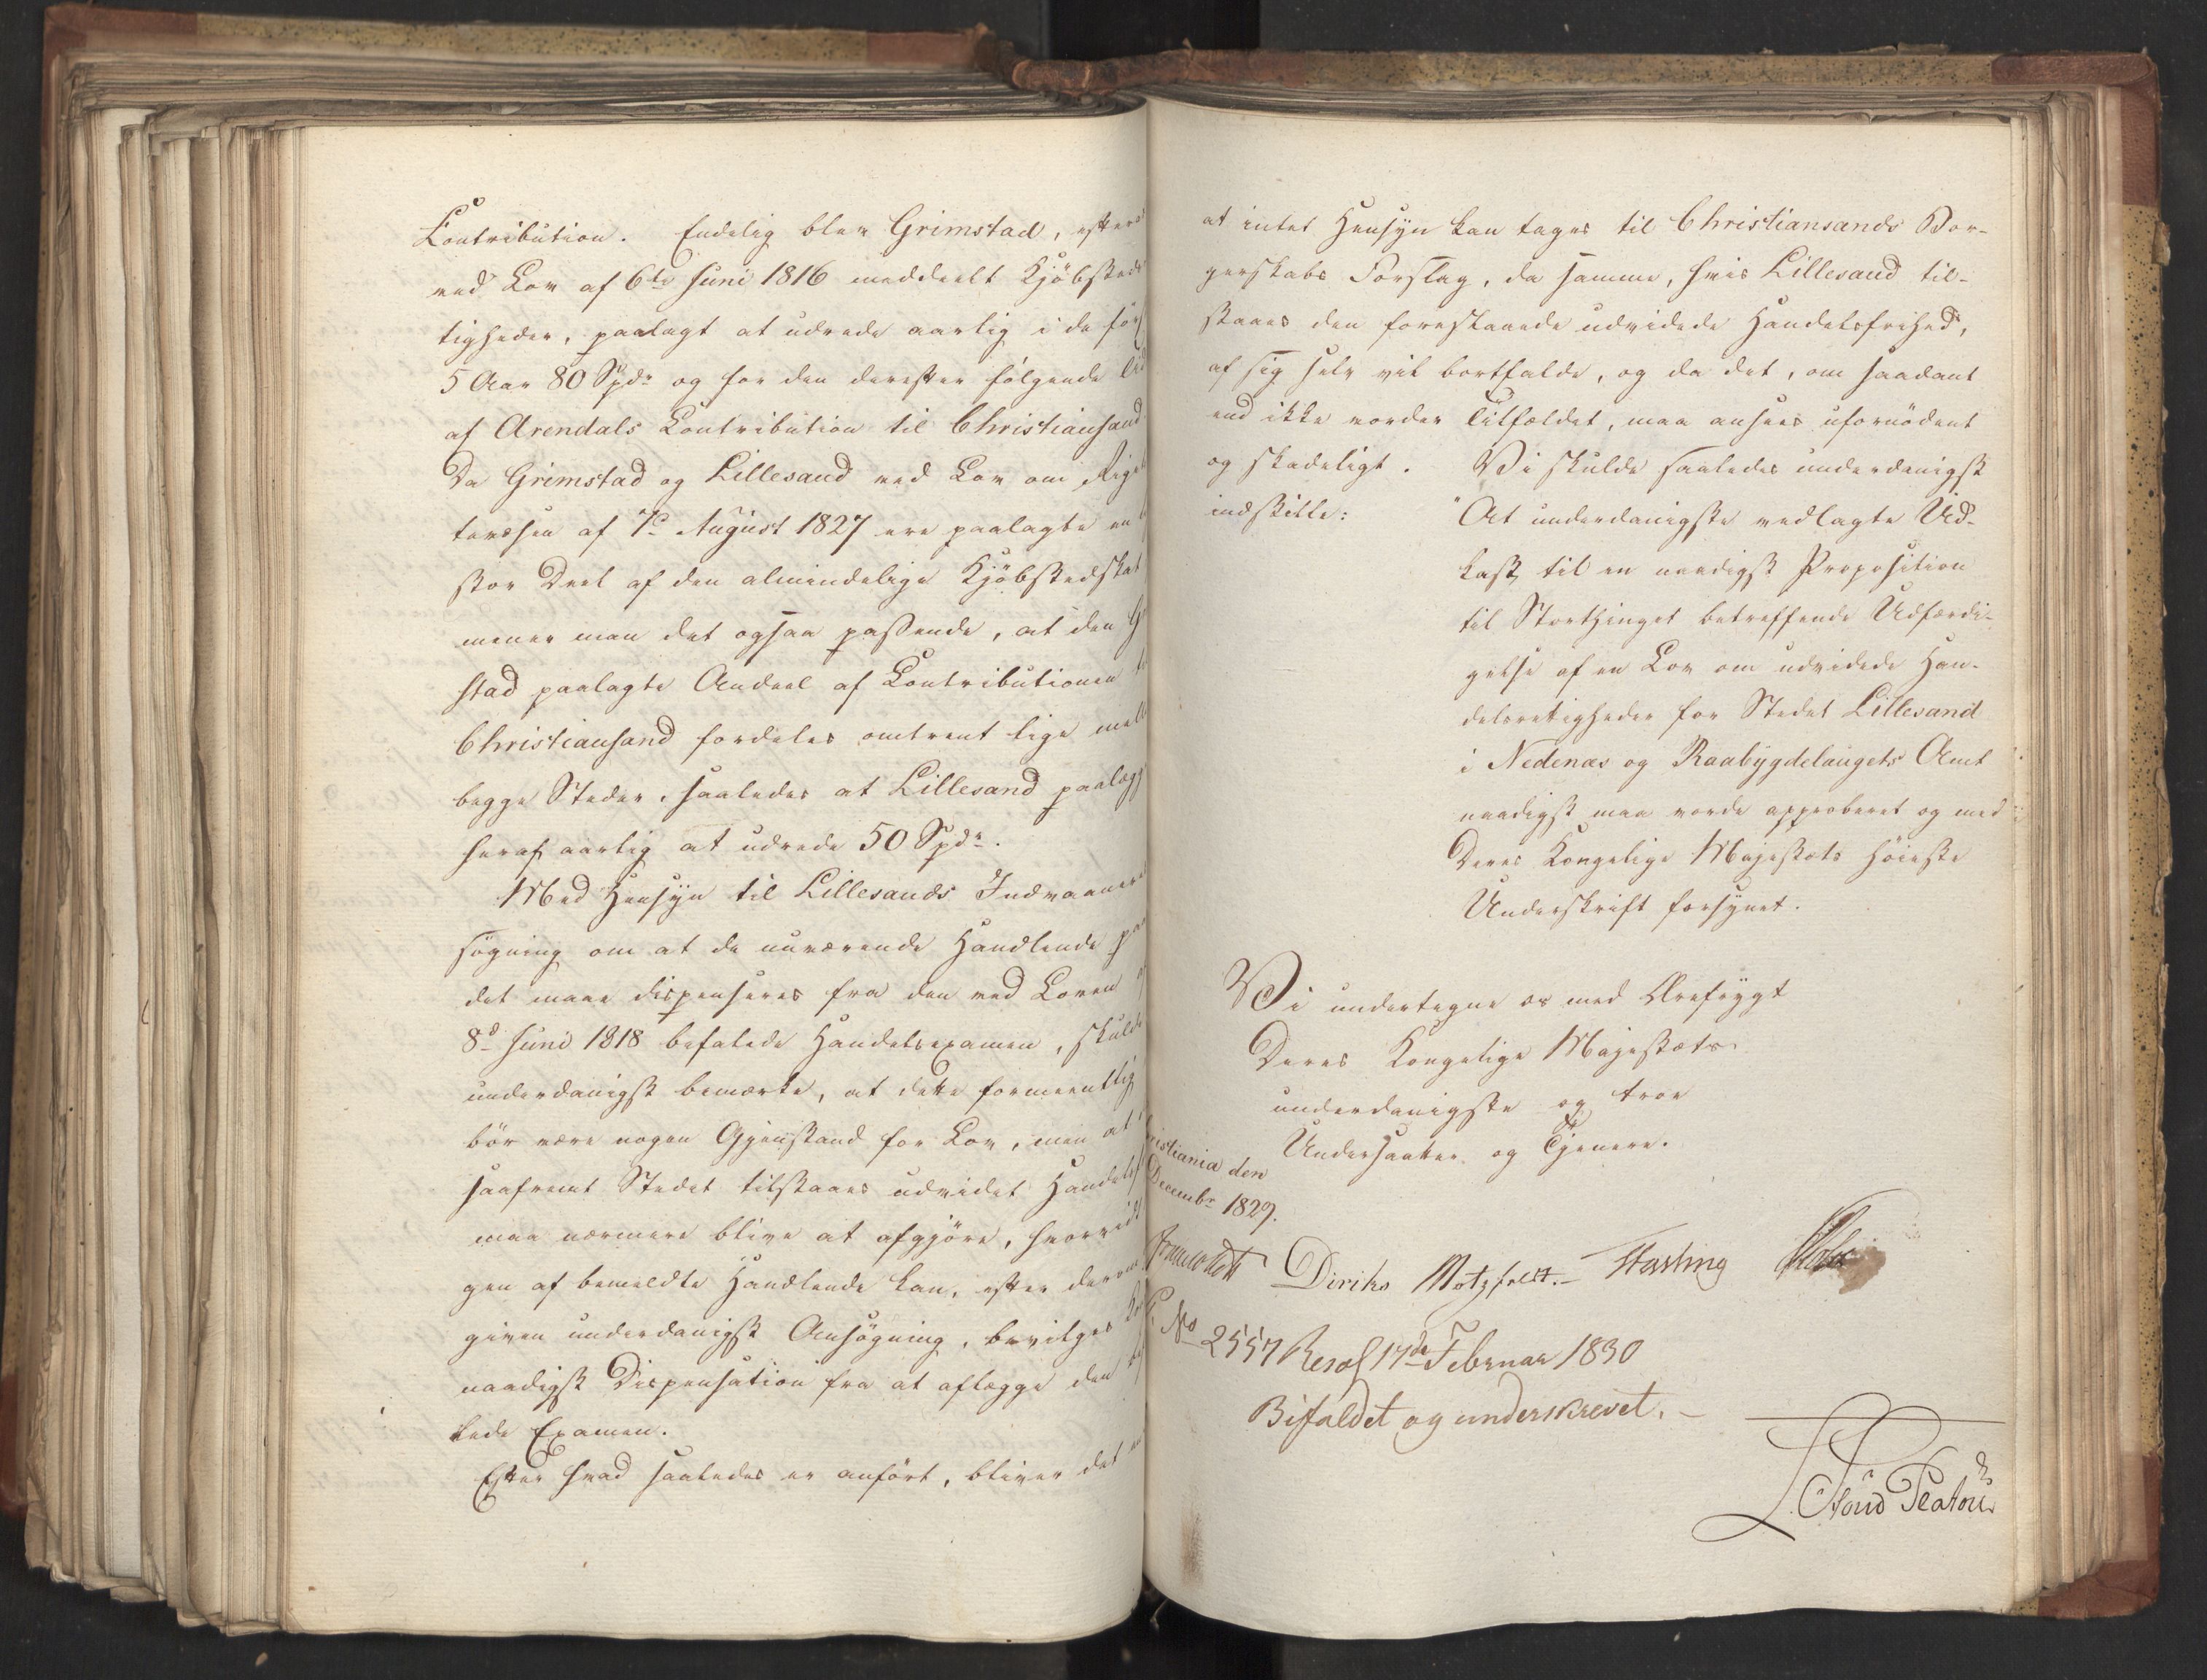 Contribution. Endelig blev Grimstad, efter
ved Lov af 6te Juni 1816 meddeelt Kjøbsteds
tigheder, paalagt at udrede aarlig i de før
5 Aar 80 Spdr og for den derefter følgende
af Arendals Contribution til Christiansand
Da Grimstad og Lillesand ved Lov om Rigets
tersen af 7d August 1827 ere paalagte en
stor Deel af den almindelige Kjøbstedskat
mener man det ogsaa passende, at den
stad paalagte Andeel af Contributionen
Christiansand fordeles omtrent lige mell
begge Steder, saaledes at Lillesand paalægg
heraf aarlig at udrede 50 Spdr.
Med Hensyn til Lillesands Indvaanere
søgning om at de nuværende Handlende paa
det maae dispenseres fra den ved Loven
8d Juni 1818 befalede Handelsexamen, skulde
underdanigst bemærke, at dette formeentlig
bør være nogen Gjenstand for Lov, men at
saafremt Stedet tilstaaes udvidet Handels
maa nærmere blive at afgjøre, hvorvidt
gen af bemeldte Handlende kan, efter derom
given underdanigst Ansøgning, bevilges
naadigst Dispensation fra at aflægge den
lede Examen.
Efter hvad saaledes er anført, bliver det
at intet Hensyn kan tages til Christiansands Bor-
gerskabs Forslag, da samme, hvis Lillesand til-
staaes den foreslaaede udvidede Handelsfrihed,
af sig selv vil bortfalde, og da det, om saadant
end ikke vorder Tilfældet, maa ansees ufornødent
og skadeligt. Vi skulde saaledes underdanigst
indstille: "At underdanigste vedlagte Ud-
kast til en naadigst Proposition
til Storthinget betreffende Udfærdi-
gelse af en Lov om udvidede Han-
delsrettigheder for Stedet Lillesand
i Nedenæs og Raabygdelaugets Amt
naadigst maa vorde approberet og med
Deres Kongelige Majestæts Høieste
Underskrift forsynet.
Vi undertegne os med Ærefrygt
Deres Kongelige Majestæts
underdanigste og troe
Undersaatter og Tjenere.
istiania den
Decembr 1829.
Diriks Motzfeldt. Fasting
No 2557 Resol 17de Februar 1830
Bifaldet og underskrevet.